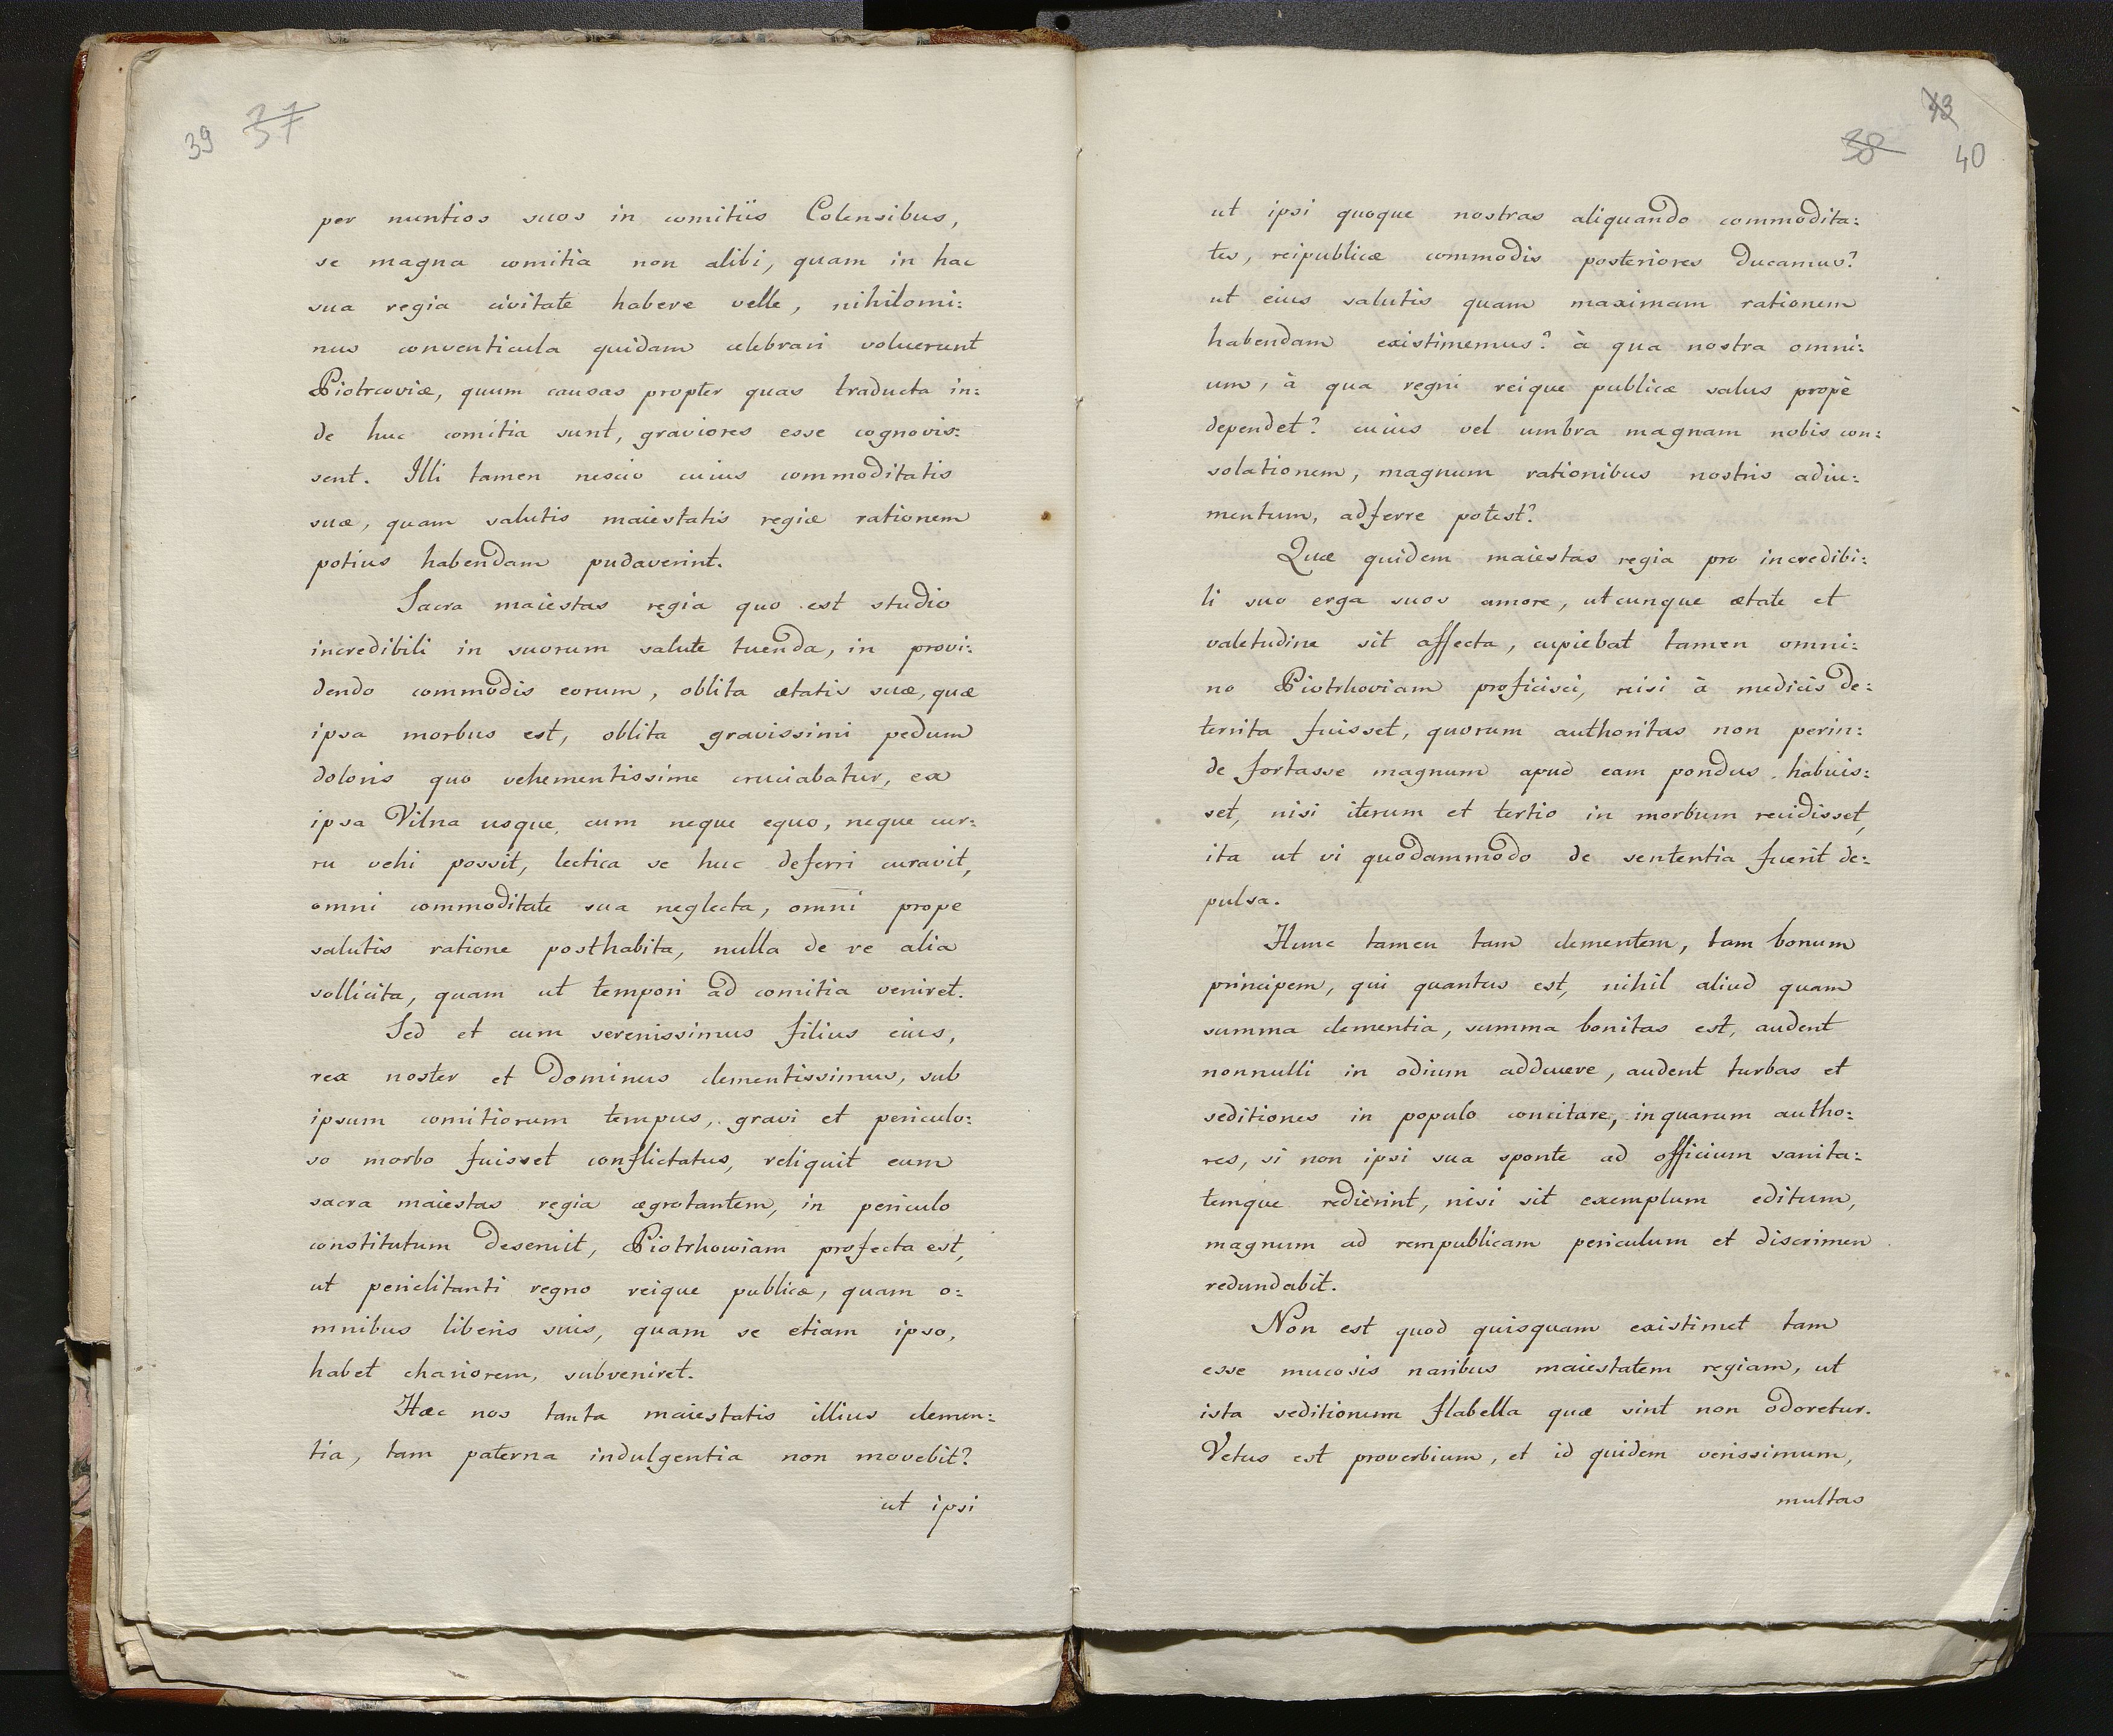 39 37
per nuntios suos in comitiis Colensibus,
se magna comitia non alibi, quam in hac
sua regia civitate habere velle, nihilomi:
nus conventicula quidam celebrari voluerunt
Piotrcoviæ, quum causas propter quas traducta in:
de huc comitia sunt, graviores esse cognovis:
sent. Illi tamen nescio cuius commoditatis
suæ, quam salutis maiestatis regiæ rationem
potius habendam pudaverint.
Sacra maiestas regia quo est studio
incredibili in suorum salute tuenda, in provi:
dendo commodis eorum, oblita ætatis suæ, quæ
ipsa morbus est, oblita gravissimi pedum
doloris quo vehementissime cruciabatur, ex
ipsa Vilna usque, cum neque equo, neque cur:
ru vehi possit, lectica se huc deferri curavit,
omni commoditate sua neglecta, omni prope
salutis ratione posthabita, nulla de re alia
sollicita, quam ut tempori ad comitia veniret.
Sed et cum serenissimus filius eius,
rex noster et Dominus clementissimus, sub
ipsum comitiorum tempus, gravi et periculo:
so morbo fuisset conflictatus, reliquit eum
sacra maiestas regia ægrotantem, in periculo
constitutum deseruit, Piotrhowiam profecta est,
ut periclitanti regno reique publicæ, quam o:
mnibus liberis suis, quam se etiam ipso,
habet chariorem, subveniret.
Hæc nos tanta maiestatis illius clemen:
tia, tam paterna indulgentia non movebit?
ut ipsi
43
38 40
ut ipsi quoque nostras aliquando commodita:
tes, reipublicæ commodis posteriores ducamus?
ut eius salutis quam maximam rationem
habendam existimemus? à qua nostra omni:
um, à qua regni reique publicæ salus propè
dependet? cuius vel umbra magnam nobis con:
solationem, magnum rationibus nostris adiu:
mentum, adferre potest?
Quæ quidem maiestas regia pro incredibi:
li suo erga suos amore, utcunque ætate et
valetudine sit affecta, cupiebat tamen omni:
no Piotrhoviam proficisci, nisi à medicis de:
territa fuisset, quorum authoritas non perin:
de fortasse magnum apud eam pondus habuis:
set, nisi iterum et tertio in morbum recidisset,
ita ut vi quodammodo de sententia fuerit de:
pulsa.
Hunc tamen tam clementem, tam bonum
principem, qui quantus est, nihil aliud quam
summa clementia, summa bonitas est, audent
nonnulli in odium adducere, audent turbas et
seditiones in populo concitare, in quarum autho:
res, si non ipsi sua sponte ad officium sanita:
temque redierint, nisi sit exemplum editum,
magnum ad rempublicam periculum et discrimen
redundabit.
Non est quod quisquam existimet tam
esse mucosis naribus maiestatem regiam, ut
ista seditionum flabella quæ sint non odoretur.
Vetus est proverbium, et id quidem verissimum,
multas